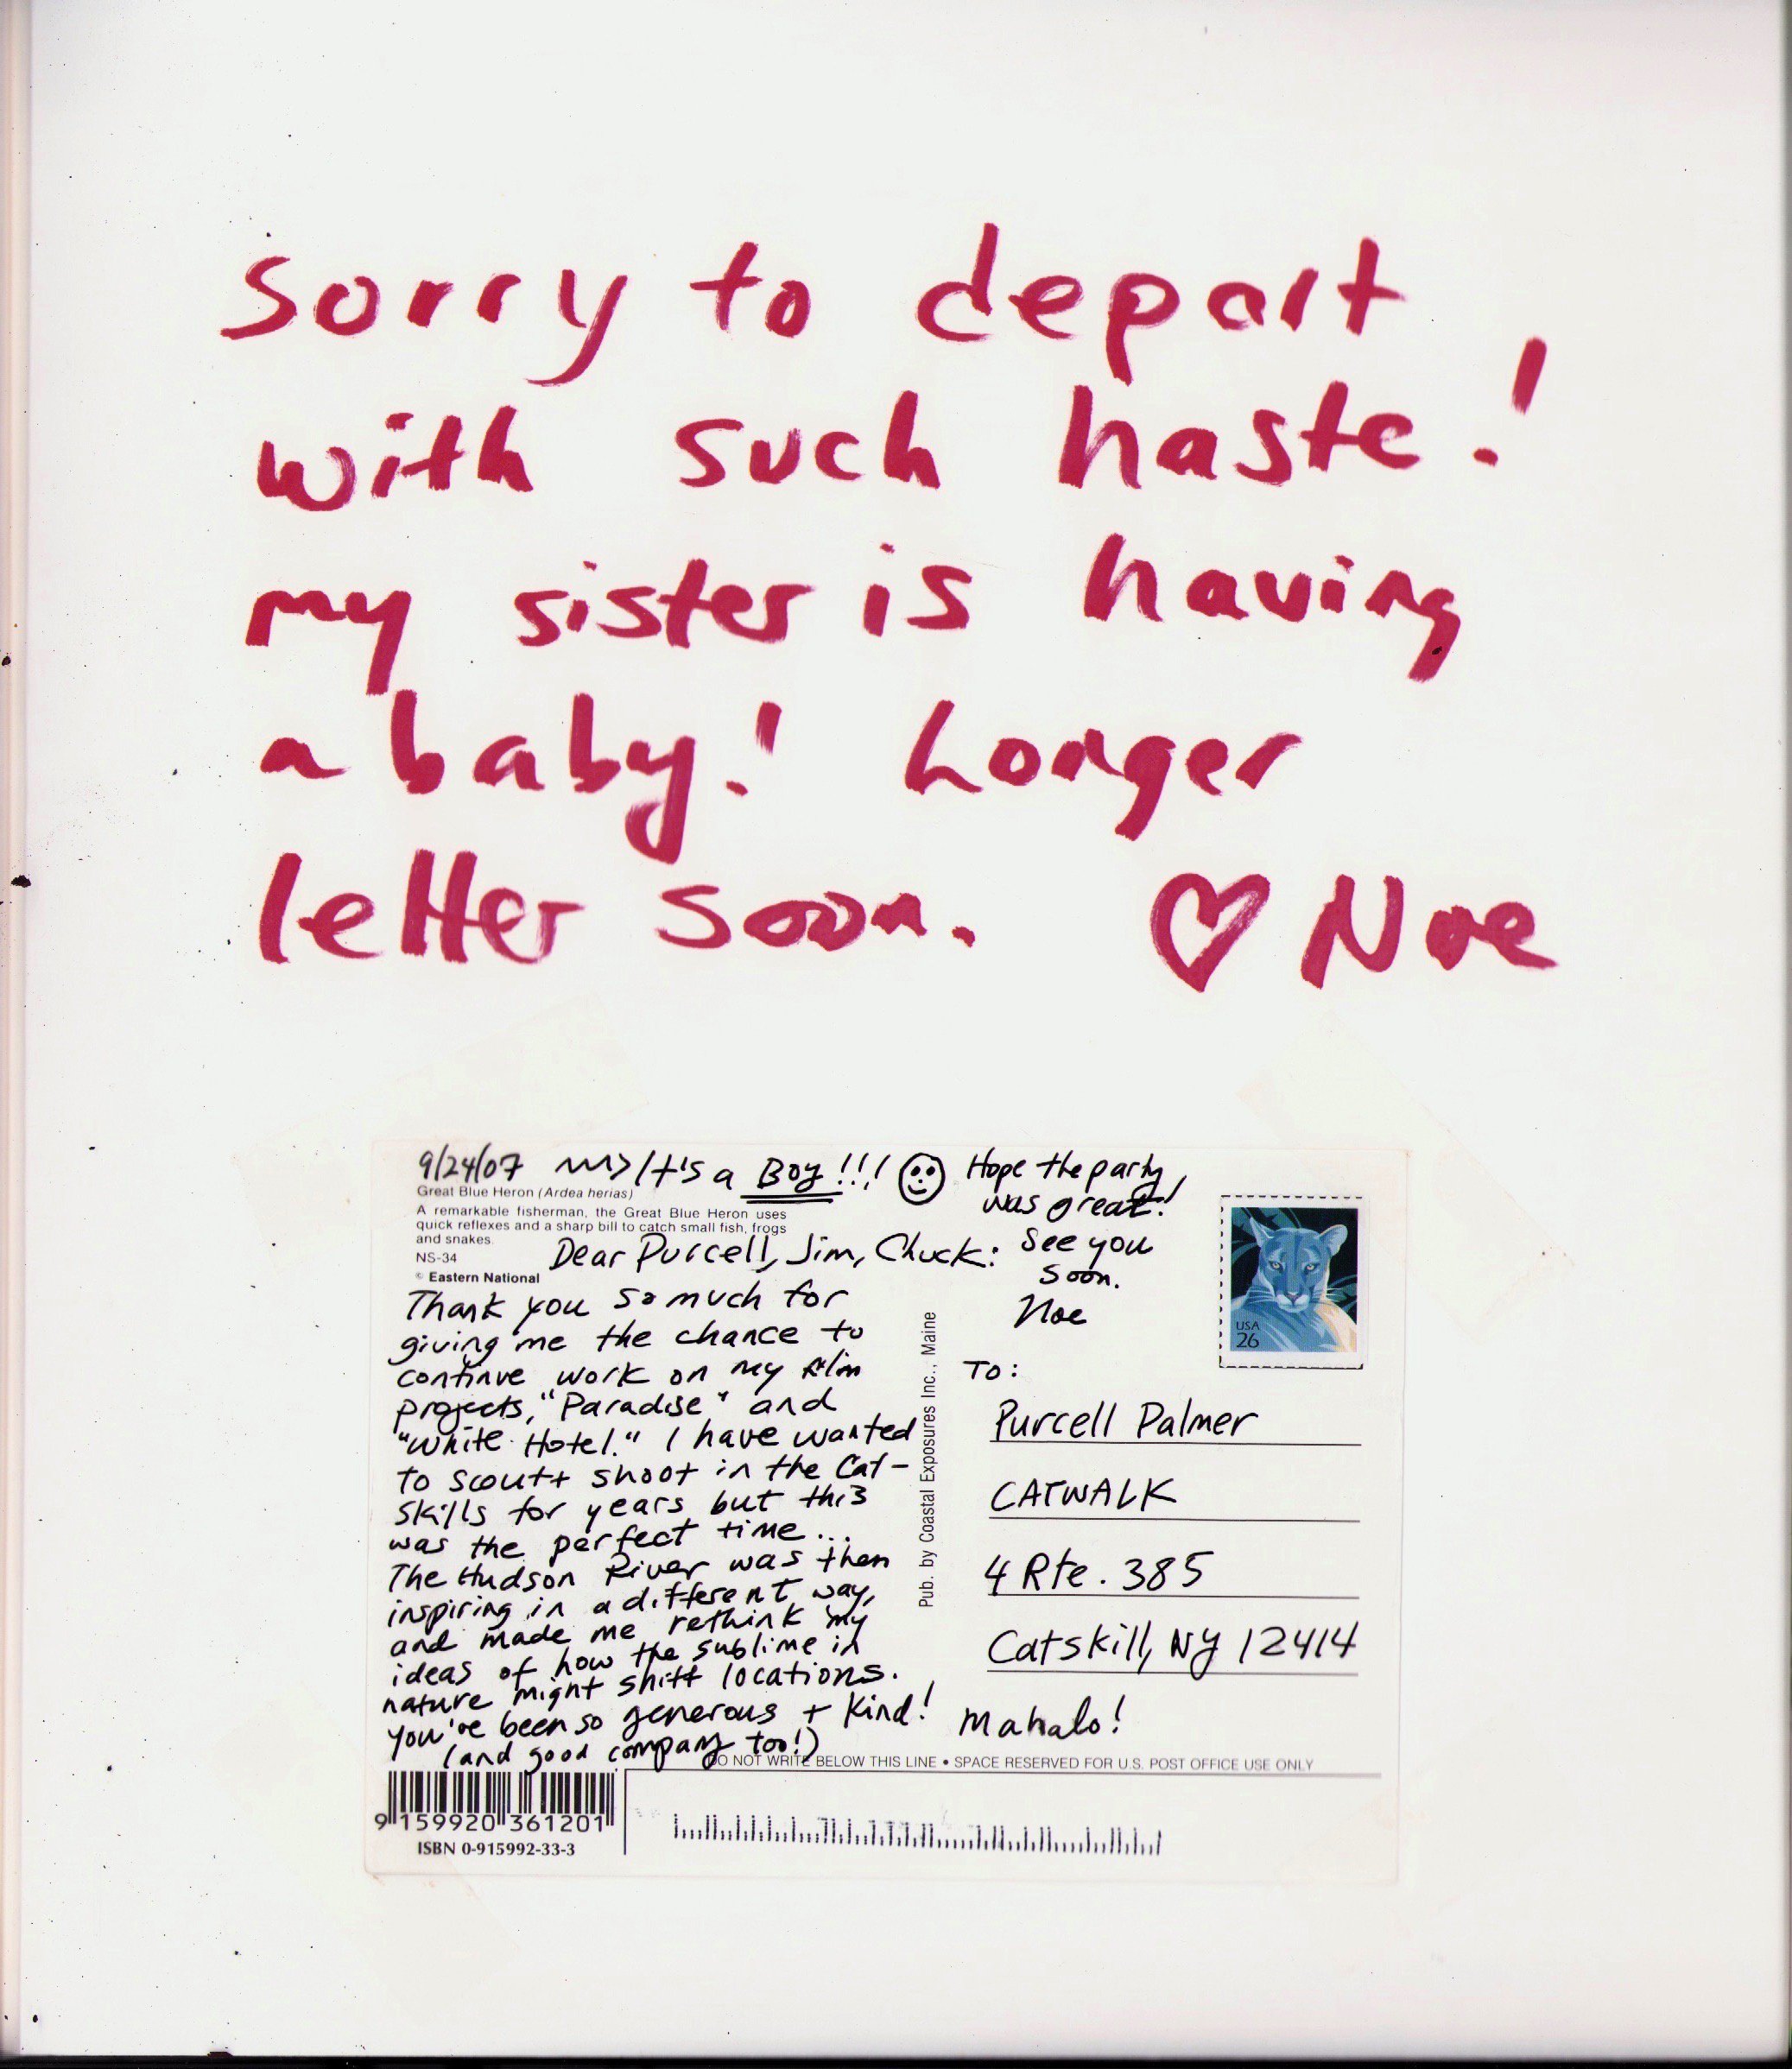 Sorry to depart
with such haste!
my sister is having
a baby! Longer
letter soon. ♡ Noe
9/24/07 ~~~> It's a Boy!!! ☺
Great Blue Heron (Ardea herias)
A remarkable fisherman, the Great Blue Heron uses
quick reflexes and a sharp bill to catch small fish, frogs
and snakes.
NS-34
© Eastern National
Dear Purcell, Jim, Chuck:
Thank you so much for
giving me the chance to
continue work on my film
projects, "Paradise" and
"White Hotel." I have wanted
to scout + shoot in the Cat-
skills for years but this
was the perfect time...
The Hudson River was then
inspiring in a different way,
and made me rethink my
ideas of how the sublime in
nature might shift locations.
You've been so generous + kind!
(and good company too!)
Hope the party
was great!
See you
soon.
Noe
Pub. by Coastal Exposures Inc., Maine
USA
26
To:
Purcell Palmer
CATWALK
4 Rte. 385
Catskill, NY 12414
Mahalo!
DO NOT WRITE BELOW THIS LINE • SPACE RESERVED FOR U.S. POST OFFICE USE ONLY
9 159920 361201
ISBN 0-915992-33-3